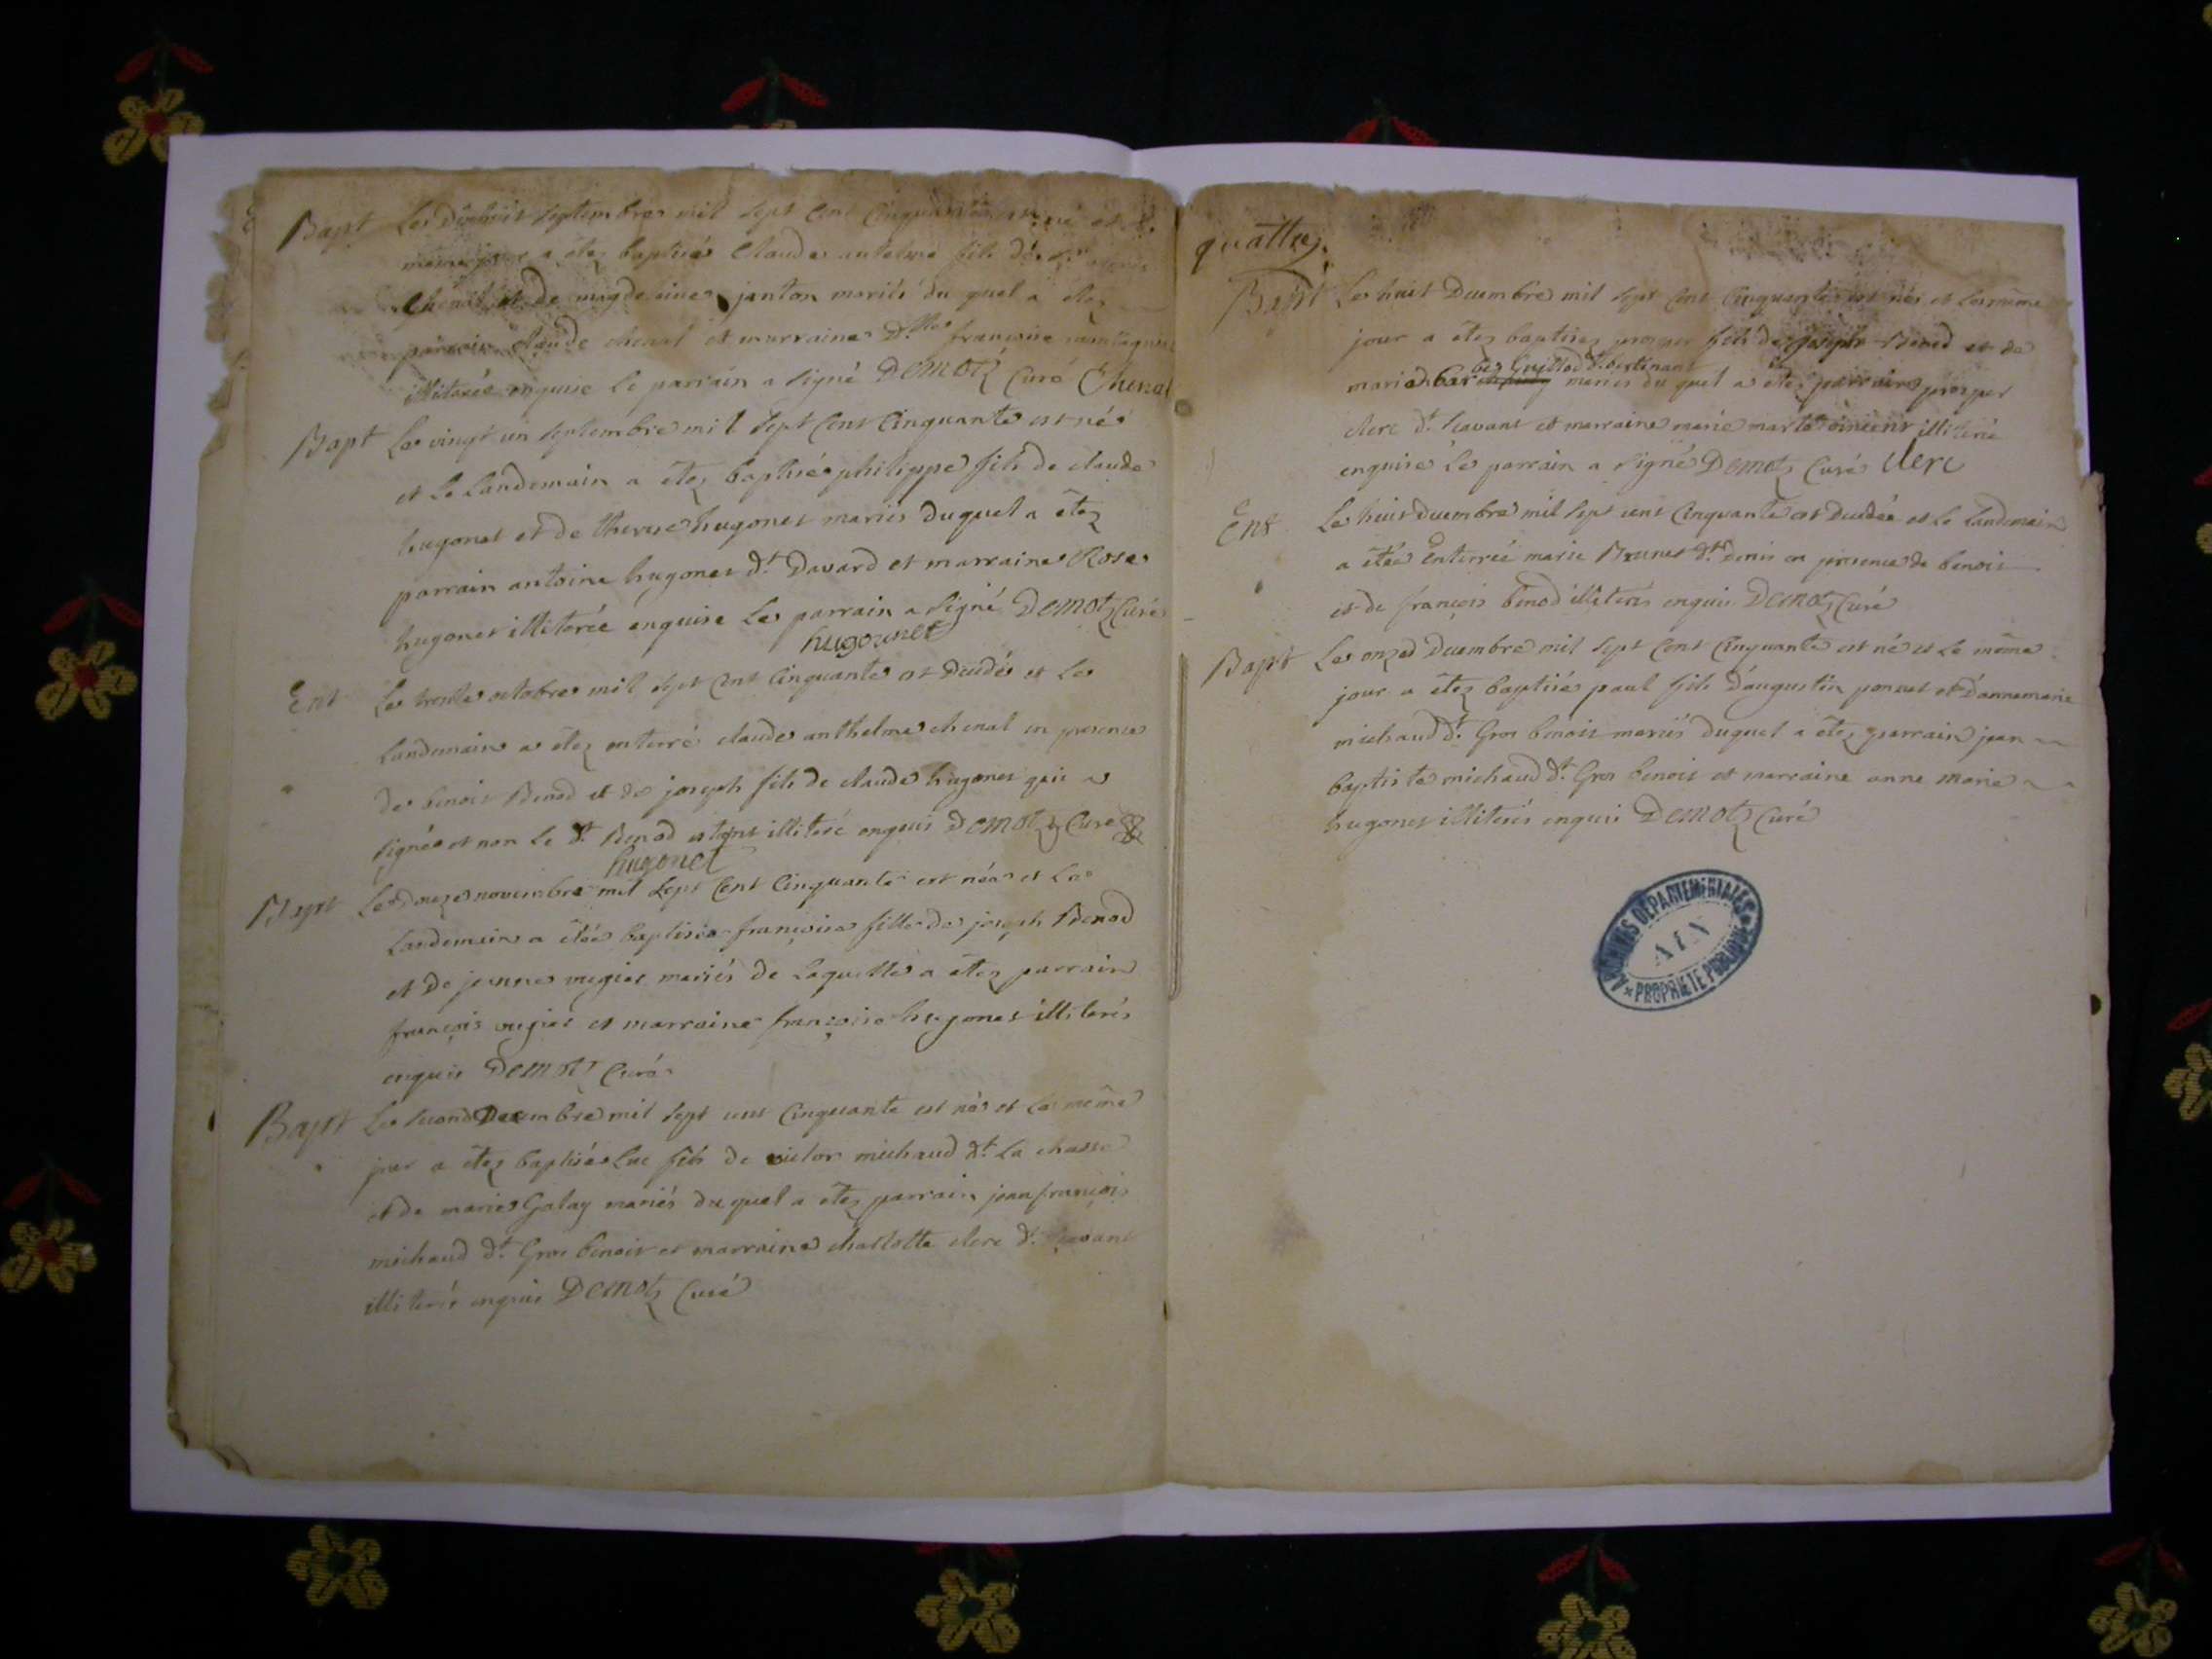 Bapt Le dixhuit septembre mil sept Cent Cinquante est né et le
même jour a étez baptisé Claude antelme fils de sr
Chenal et de magdelaine janton mariés du quel a étez
parrain Claude chenal et marraine Dlle françoise
illiterée enquise le parrain a signé Demotz Curé Chenal
Bapt Le vingt un septembre mil sept Cent Cinquante est né
et Le Landemain a étez baptisé philippe fils de claude
hugonet et de therese hugonet mariés duquel a étez
parrain antoine hugonet dt Davard et marraine Rose
hugonet illiterée enquise Le parrain a signé Demotz Curé
hugounet
Ent Le trente octobre mil sept Cent Cinquante est Decedé et Le
Landemain a étez enterré claude anthelme chenal en presence
de benoit Benod et de joseph fils de claude hugonet qui a
signé et non le dt Benod etant illiteré enquis Demotz Curé
hugonet
Bapt Le douze novembre mil sept Cent Cinquante est née et Le
Landemain a étée baptisée françoise fille de joseph Benod
et De jeanne mariés de Laquelle a étez parrain
françois et marraine françoise hugonet illiterés
enquis Demotz Curé
Bapt Le second Decembre mil sept cent Cinquante est né et Le même
jour a étez baptisé Luc fils de victor michaud dt La chasse
et de marie Galay mariés du quel a étez parrain jean françois
michaud dt Gros benoit et marraine charlotte clerc dt Savant
illiterés enquis Demotz Curé
quattre.
Bapt Le huit Decembre mil sept Cent Cinquante est né et Le même
jour a étez baptisez prosper fils de joseph Benod et de
be Guillod dt bertinant
marie Bar mariés du quel a étez parrain prosper
clerc dt Savant et marraine marie marte vincent illiterée
enquise Le parrain a signé Demotz Curé Clerc
Ent Le huit Decembre mil sept cent Cinquante est Decedée et Le Landemain
a étée Enterrée marie Brunet dt Denis en presence de benoit
et de françois benod illiterés enquis Demotz Curé
Bapt Le onze Decembre mil sept Cent Cinquante est né et Le même
jour a étez baptisé paul fils d'augustin ponnet et d'annemarie
michaud dt Gros benoit mariés duquel a étez parrain jean
baptiste michaud dt Gros benoit et marraine anne marie
hugonet illiterés enquis Demotz Curé
ARCHIVES DÉPARTEMENTALES
AIN
* PROPRIÉTÉ PUBLIQUE *